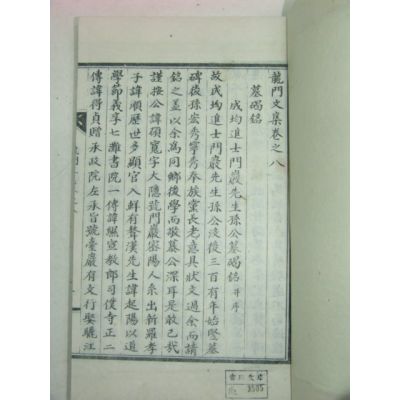 龍門文集卷之八
墓碣銘
成均進士門巖先生孫公墓碣銘 幷序
故成均進士門巖先生孫公沒後三百有年始竪墓
碑後孫宏秀寧秀奉族黨長老意具狀文過余而請
銘之盖以余爲同鄕後學而敬慕公深耳是敢已哉
謹按公諱碩寬字大隱號門巖密陽人系出新羅孝
子諱順歷世多顯官入鮮有聱漢先生諱起陽以道
學節義享七灘書院一傳諱宣敎郎司僕寺正二
傳諱得貞贈承政院左承旨號臺巖有文行娶驪江